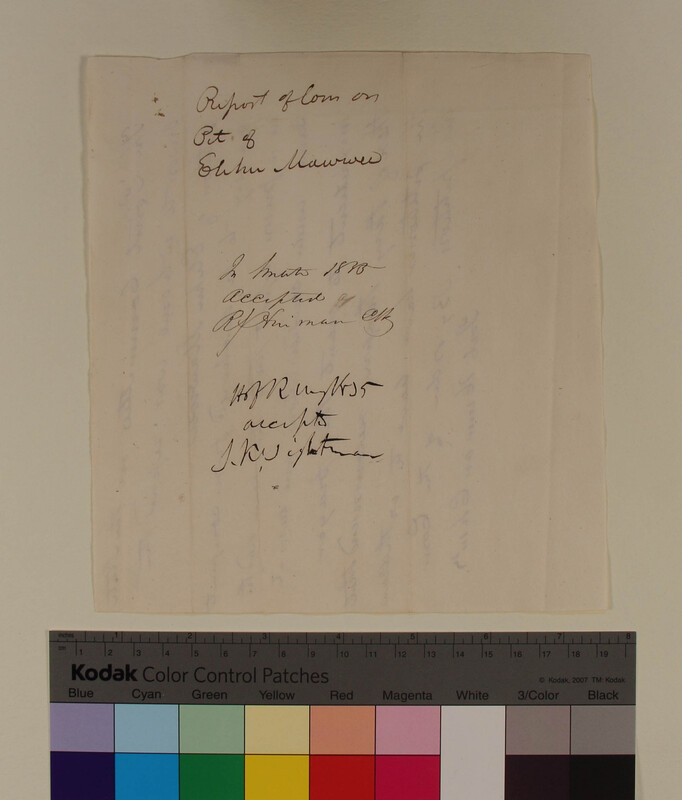 Report of Com on
Pet. of
Elihu Mawwee
In Senate 1835
Accepted
R. Hinman Clk
H of R May 1835
accepts
J. K. Wightman
inches 1 2 3 4 5 6 7 8
cm 1 2 3 4 5 6 7 8 9 10 11 12 13 14 15 16 17 18 19
Kodak Color Control Patches
© Kodak, 2007 TM: Kodak
Blue Cyan Green Yellow Red Magenta White 3/Color Black